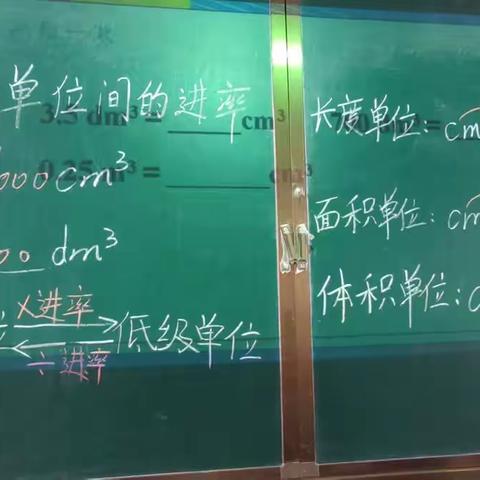 单位间的进率
3.5 dm³ = ______ cm³
000cm³
0.25 m³ = ______
00 dm³
×进率
低级单位
÷进率
长度单位: cm
面积单位: cm
体积单位: